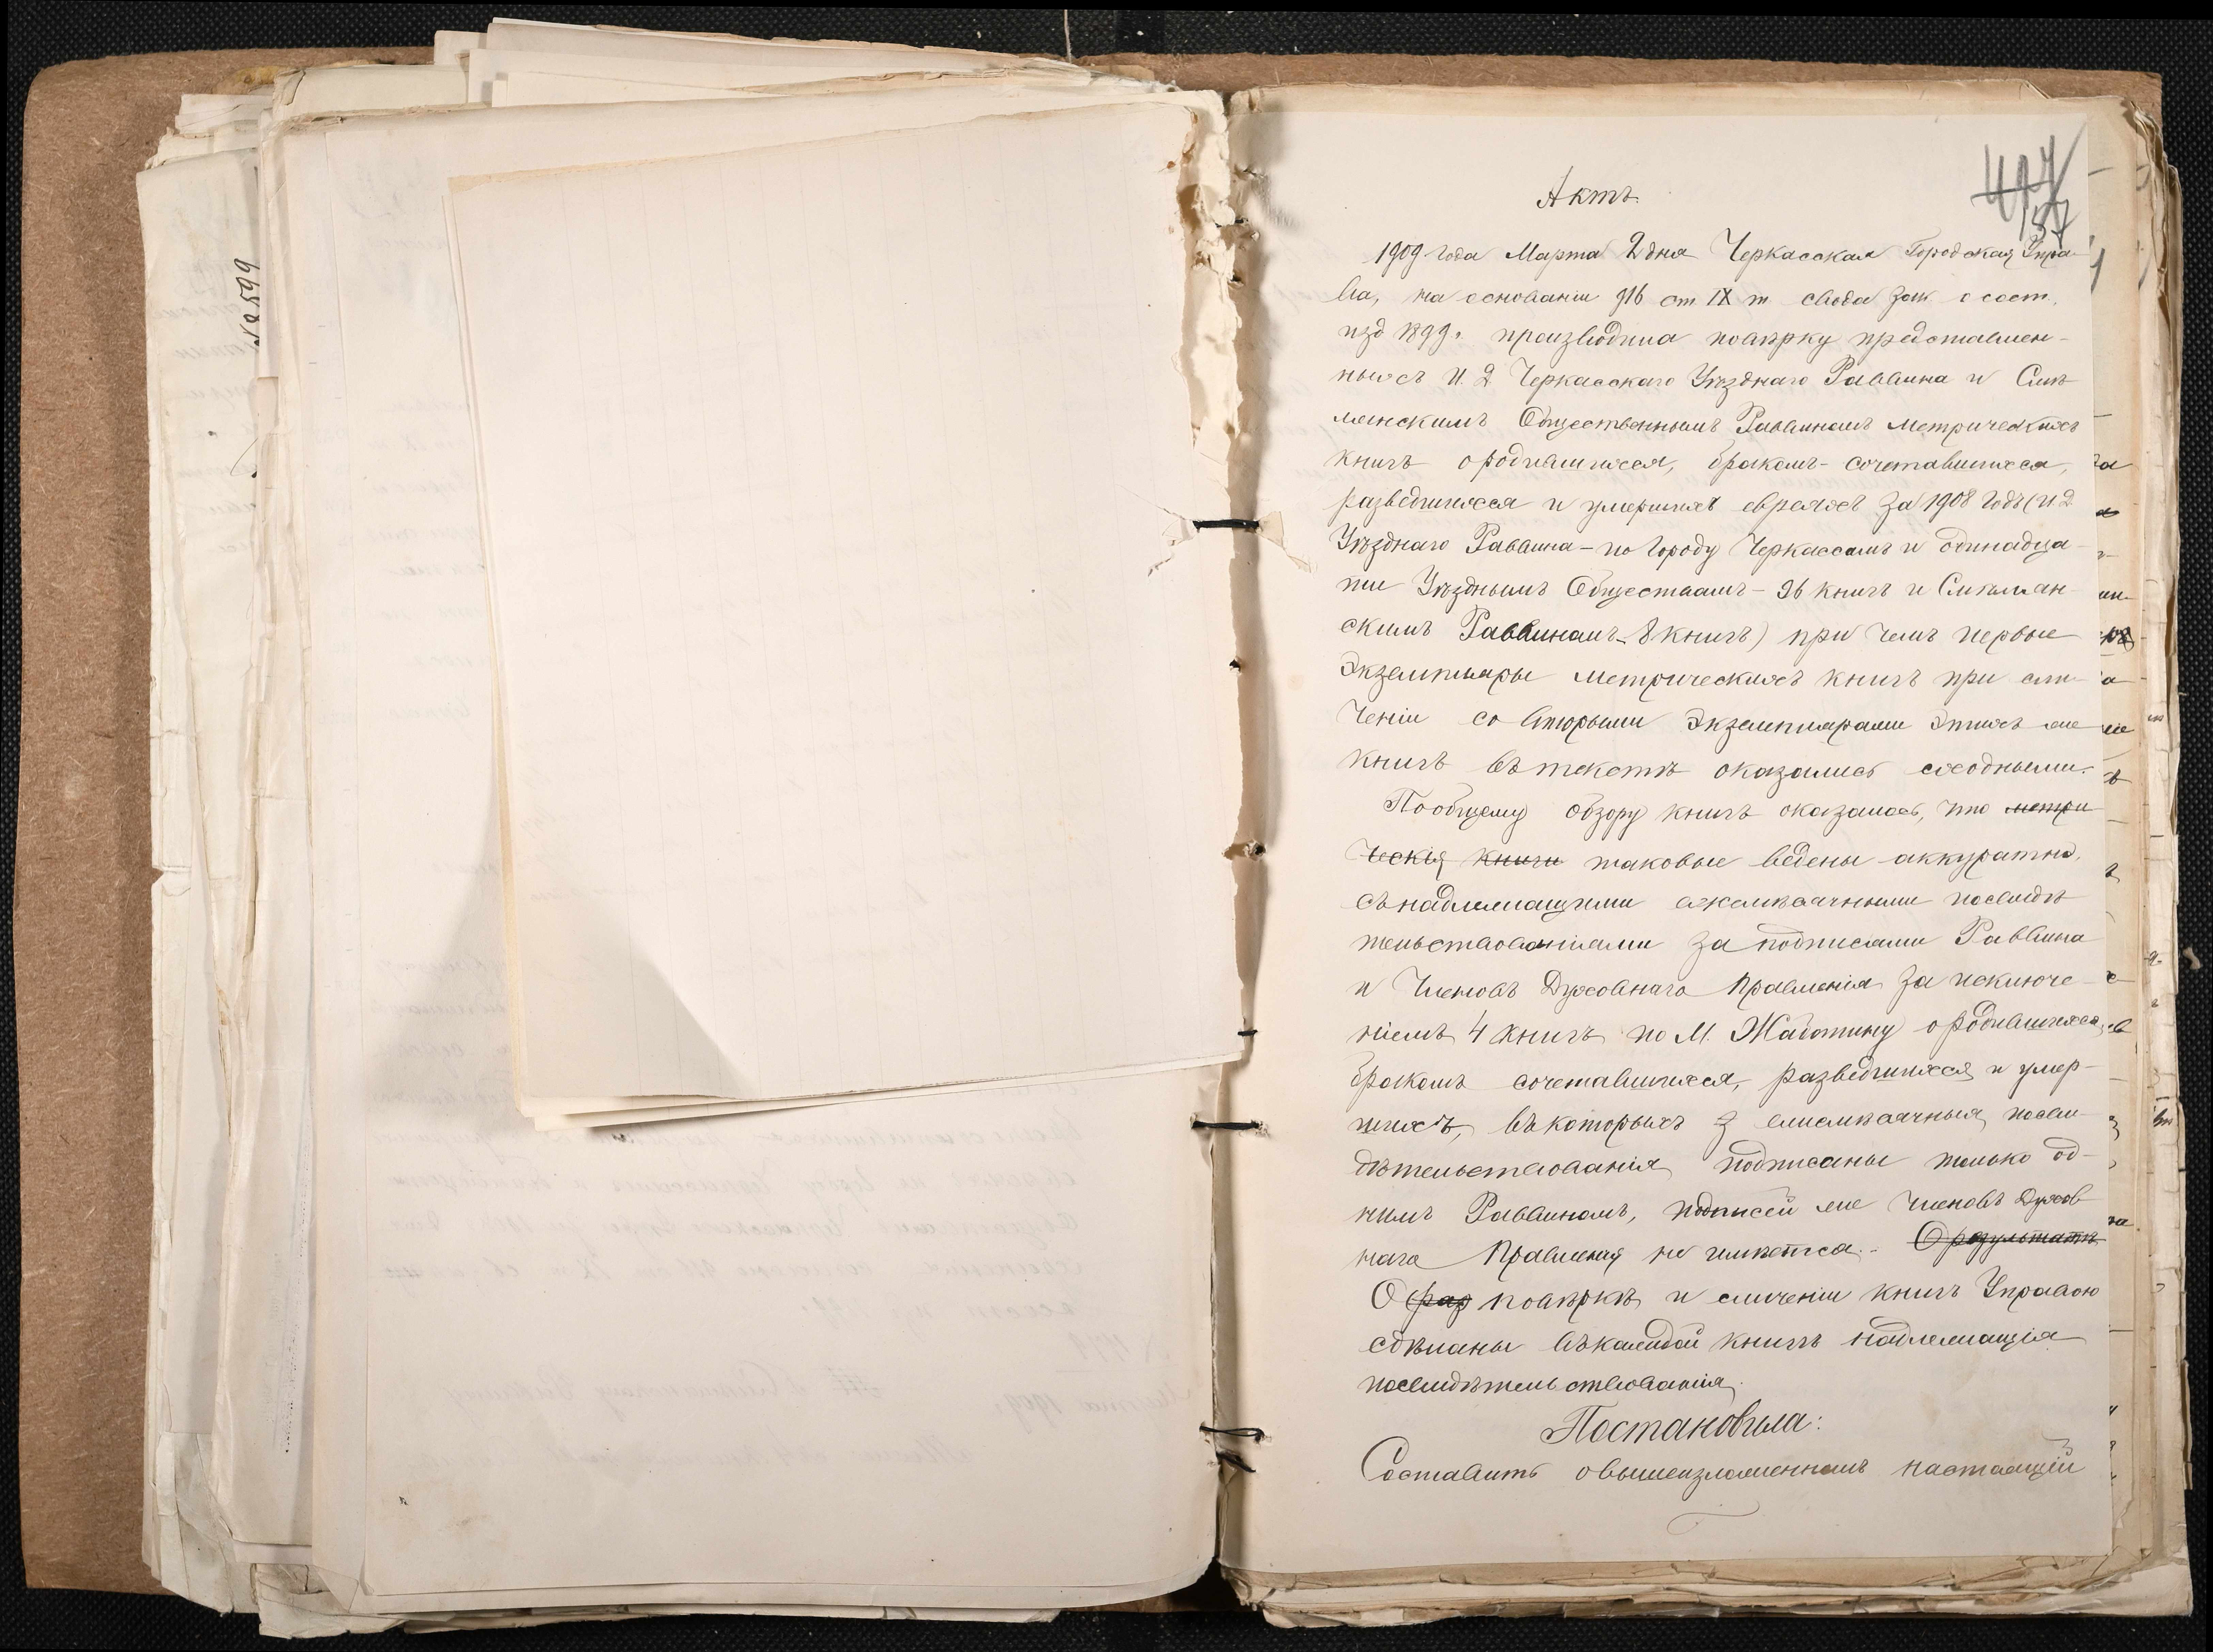 № 2599
417
157
Актъ
1909 года Марта 2 дня Черкасская Городская Упра-
ва, на основаніи 916 ст. IX т. свода зак. о сост.
изд 1899 г. производила повѣрку представлен-
ныхъ И. Д. Черкасскаго Уѣзднаго Раввина и Смѣ-
лянскимъ Общественнымъ Раввиномъ метрическихъ
книгъ о родившихся, бракомъ-сочетавшихся,
разведшихся и умершихъ евреяхъ за 1908 годъ (И. Д.
Уѣзднаго Раввина – по городу Черкассамъ и одинадца-
ти Уѣзднымъ Обществамъ – 96 книгъ и Смѣлян-
скимъ Раввиномъ – 8 книгъ) при чемъ первые
экземпляры метрическихъ книгъ при сли-
ченіи со вторыми экземплярами этихъ же
книгъ въ текстѣ оказались сходными.
По общему обзору книгъ оказалось, что метри
ческія книги таковые ведены аккуратно,
съ надлежащими ежемѣсячными посвидѣ
тельствованіями за подписями Раввина
и Членовъ Духовнаго Правленія за исключе-
ніемъ 4 книгъ по М. Жаботину о родившихся,
бракомъ сочетавшихся, разведшихся и умер-
шихъ, въ которыхъ ежемѣсячныя посви-
дѣтельствованія подписаны только од-
нимъ Раввиномъ, подписей же Членовъ Духов
наго Правленія не имѣется. О результатѣ
О раз повѣркѣ и сличеніи книгъ Управою
сдѣланы въ каждой книгѣ надлежащія
посвидѣтельствованія.
Постановила:
Составить о вышеизложенномъ настоящій